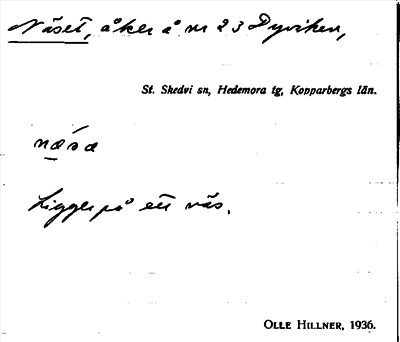 Näset, åker å nr 23 Dyviken,
St. Skedvi sn, Hedemora tg, Kopparbergs län.
næ´sæ
Ligger på ett näs.
OLLE HILLNER, 1936.